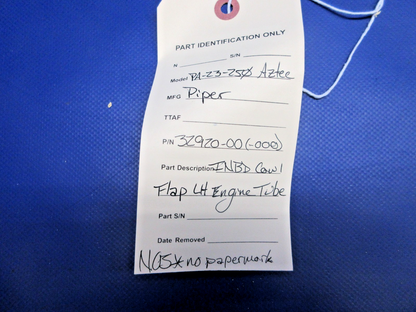 PART IDENTIFICATION ONLY
N S/N
Model PA-23-250 Aztec
MFG Piper
TTAF
P/N 32920-00 (-000)
Part Description INBD Cowl
Flap LH Engine Tube
Part S/N
Date Removed
NOS* no paperwork